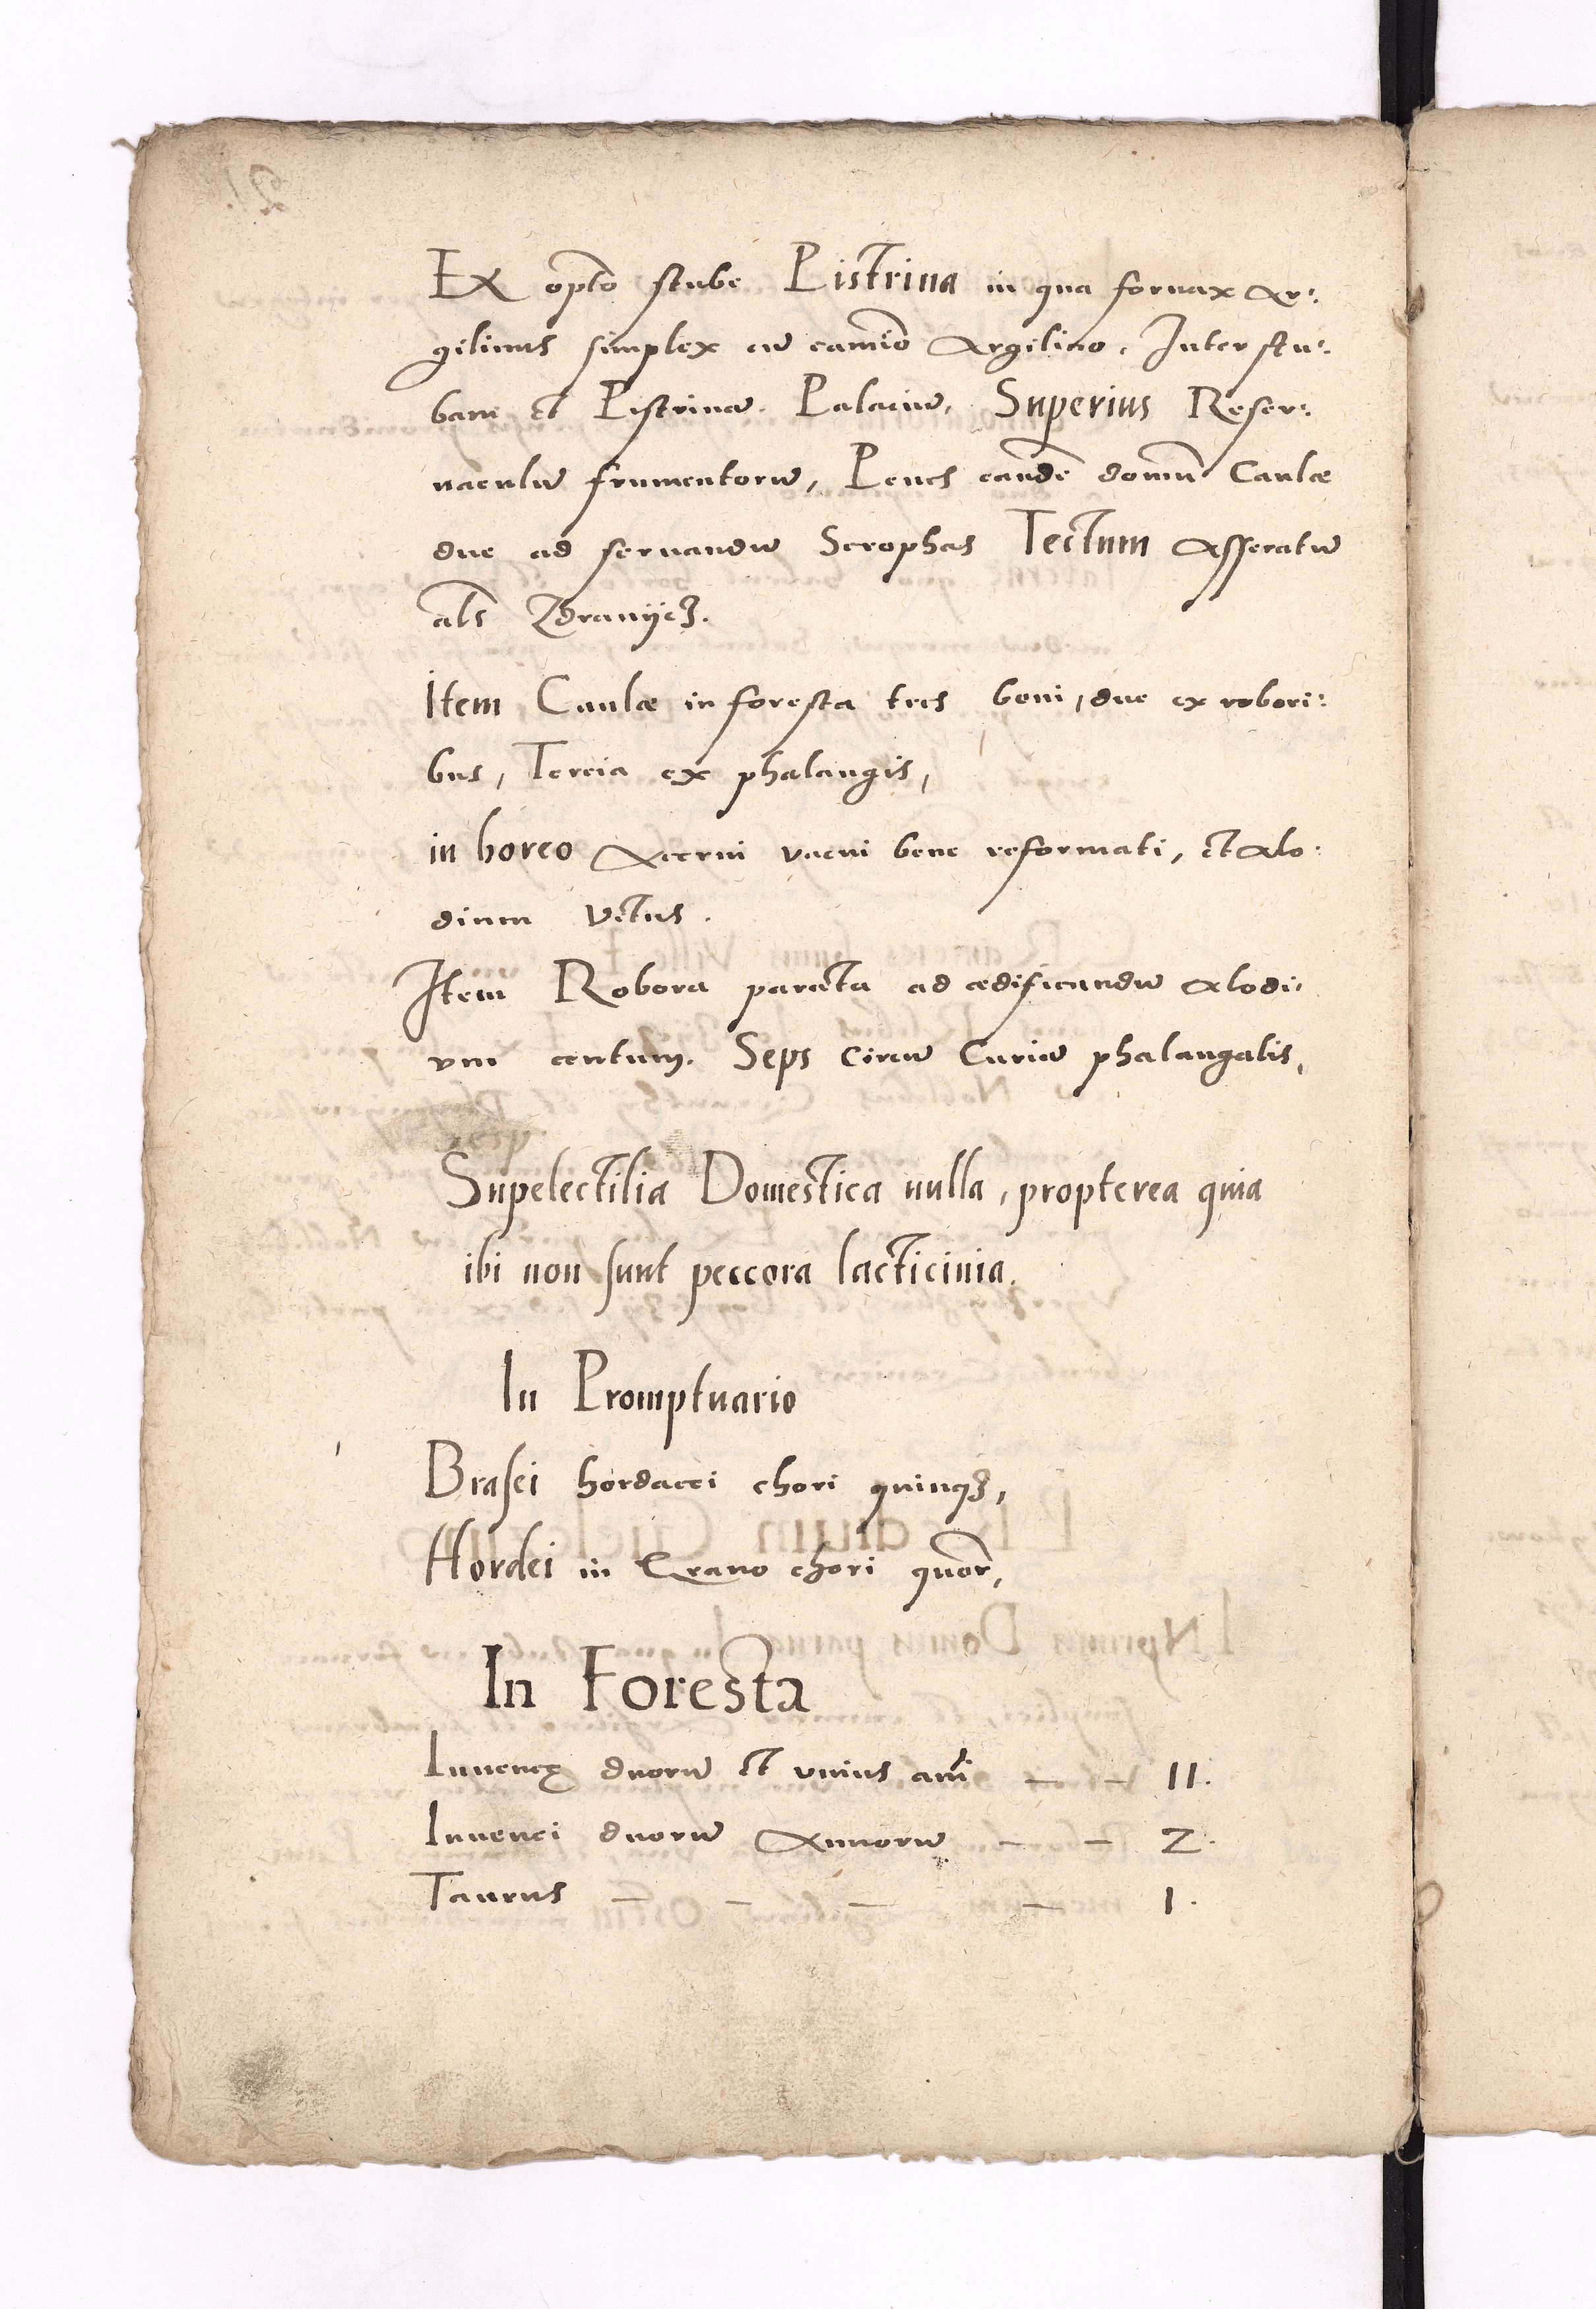 Ex opto stube Pistrina in qua fornax Ar:
gilinus simplex cū camīo Argilino. Inter stu:
bam et Pistrinā. Palaciū. Superius Reser:
uaculū frumentorū, Penes eandē domū Caulæ
due ad seruandū Scrophas Tectum Asseratū
als Zdranijcȝ.
Item Caulæ in foresta tres boni, due ex robori:
bus, Tercia ex phalangis,
in horeo Acerui vacui bene reformati, et Alo:
dium Vetus.
Item Robora parata ad ædificandū Alodi:
vm centum. Seps Circū Curiā phalangatis,
Supelectilia Domestica nulla, propterea quia
ibi non sunt peccora lacticinia.
In Promptuario
Brasei hordacei chori quinqȝ,
Hordei in Grano chori quor,
In Foresta
Iuuencę duorū et vnius anni — — 11.
Iuuenci duorū Annorū — — 2.
Taurus — — — — 1.